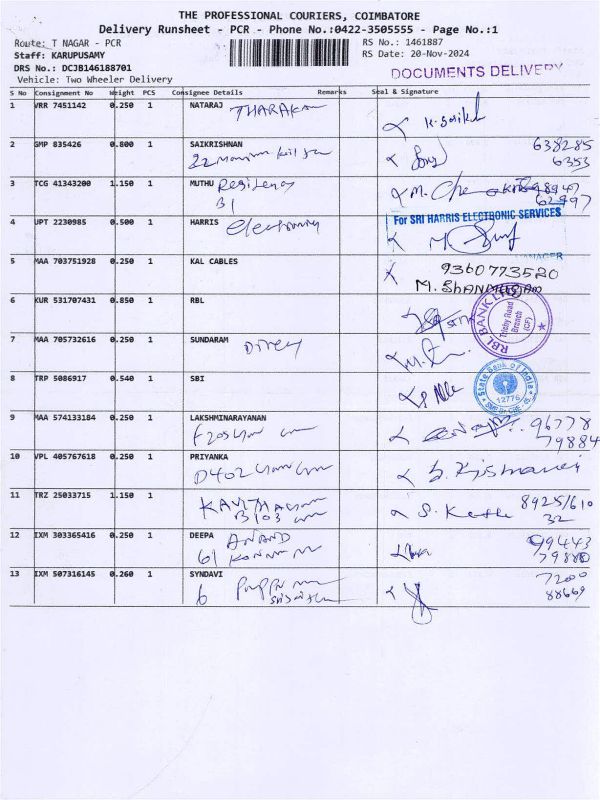 THE PROFESSIONAL COURIERS, COIMBATORE
Delivery Runsheet - PCR - Phone No.:0422-3505555 - Page No.:1
Route: T NAGAR - PCR
RS No.: 1461887
Staff: KARUPUSAMY
RS Date: 20-Nov-2024
DRS No.: DCJB146188701
DOCUMENTS DELIVERY
Vehicle: Two Wheeler Delivery
S No Consignment No Weight PCS Consignee Details Remarks Seal & Signature
1 VRR 7451142 0.250 1 NATARAJ THARAKAN
2 GMP 835426 0.800 1 SAIKRISHNAN
638285
6353
3 TCG 41343200 1.150 1 MUTHU Residency
B1
62997
4 UPT 2230985 0.500 1 HARRIS
For SRI HARRIS ELECTRONIC SERVICES
MANAGER
5 MAA 703751928 0.250 1 KAL CABLES
9360773520
M. SHANMUGAM
6 KUR 531707431 0.850 1 RBL
RBL BANK LTD
Trichy Road
Branch
(CF)
7 MAA 705732616 0.250 1 SUNDARAM
8 TRP 5086917 0.540 1 SBI
State Bank of India
12776
9 MAA 574133184 0.250 1 LAKSHMINARAYANAN
96778
79884
10 VPL 405767618 0.250 1 PRIYANKA
D402
11 TRZ 25033715 1.150 1
B103
8925/610
32
12 IXM 303365416 0.250 1 DEEPA ANAND
61
99443
79880
13 IXM 507316145 0.260 1 SYNDAVI
6
7200
88669